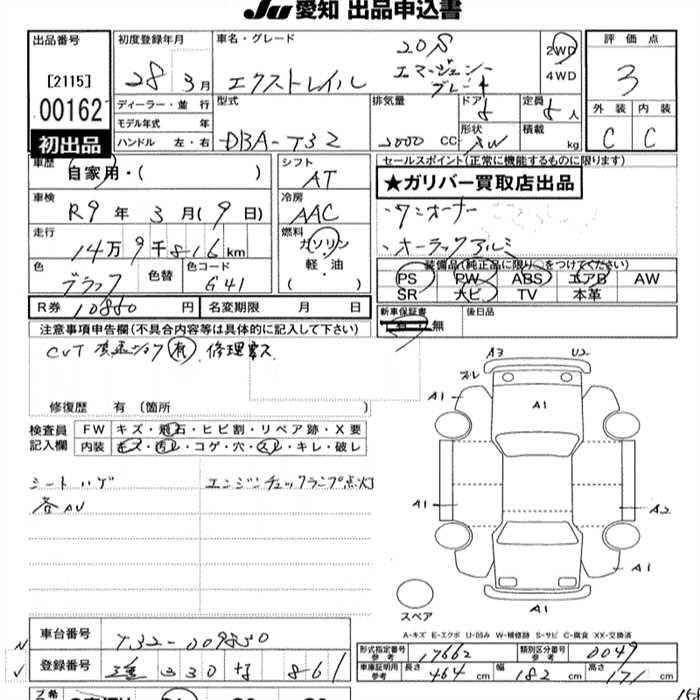 JU 愛知 出品申込書
出品番号
[2115]
00162
初出品
初度登録年月
28年 3月
車名・グレード
エクストレイル 20S
エマージェンシー
ブレーキ
2WD
4WD
評価点
3
外装 内装
C C
ディーラー・並行
モデル年式 年
ハンドル 左・右
型式
DBA-T32
排気量
2000 CC
ドア
5
形状
SW
定員
5人
積載
kg
車歴
自家用・( )
シフト
AT
セールスポイント(正常に機能するものに限ります)
★ガリバー買取店出品
・ワンオーナー
・オーラックアルミ
車検
R9年 3月(9日)
冷房
AAC
走行
14万9千816km
燃料
ガソリン
軽・油
色
ブラック
色替
色コード
G41
装備品(純正品に限り○をつけてください)
PS PW ABS エアB AW
SR ナビ TV 本革
R券 10850円
名変期限 月 日
新車保証書
有・無
後日品
注意事項申告欄(不具合内容等は具体的に記入して下さい)
CVT 有 修理
修復歴 有 〔箇所 〕
検査員
記入欄
FW キズ・飛石・ヒビ割・リペア跡・X要
内装 キズ・汚れ・コゲ・穴・スレ・キレ・破レ
シートハゲ
各AU
エンジンチェックランプ点灯
A3 U2
ズレ
A1 A1
A1 A2
A1
A1
スペア
A-キズ E-エクボ U-凹み W-補修跡 S-サビ C-腐食 XX-交換済
車台番号
T32-009850
登録番号
330 861
形式指定番号
参考
17662
類別区分番号
参考
0049
車庫証明用
参考
長さ 464 cm 幅 182 cm 高さ 171 cm